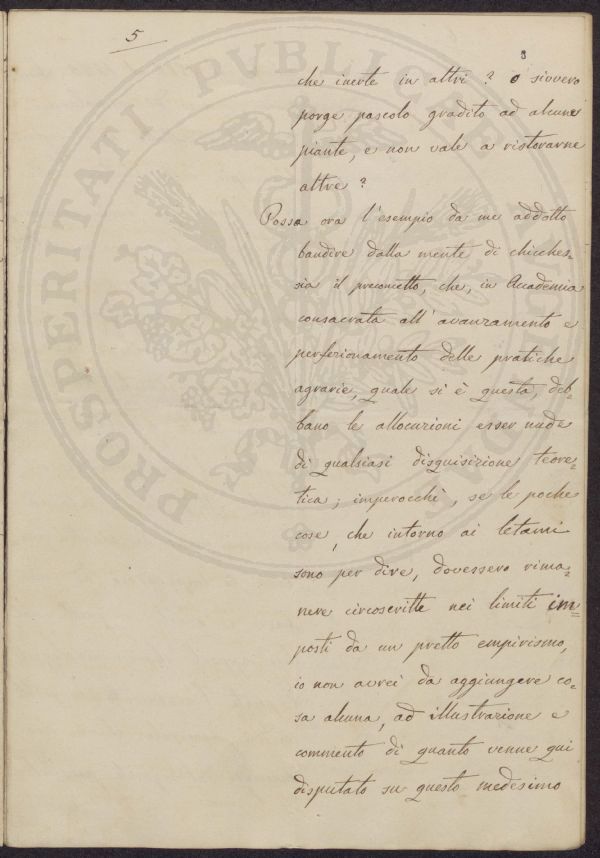 5
3
che inerte in altri? o sivvero
porge pascolo gradito ad alcune
piante, e non vale a ristorarne
altre?
Possa ora l'esempio da me addotto
bandire dalla mente di chicches=
sia il preconcetto, che, in Academia
consacrata all'avanzamento e
perfezionamento delle pratiche
agrarie, quale si è questa, deb=
bano le allocuzioni esser nude
di qualsiasi disquisizione teore=
tica; imperocchè, se le poche
cose, che intorno ai letami
sono per dire, dovessero rima=
nere circoscritte nei limiti im=
posti da un pretto empirismo,
io non avrei da aggiungere co=
sa alcuna, ad illustrazione e
commento di quanto venne qui
disputato su questo medesimo
PROSPERITATI PVBLICAE